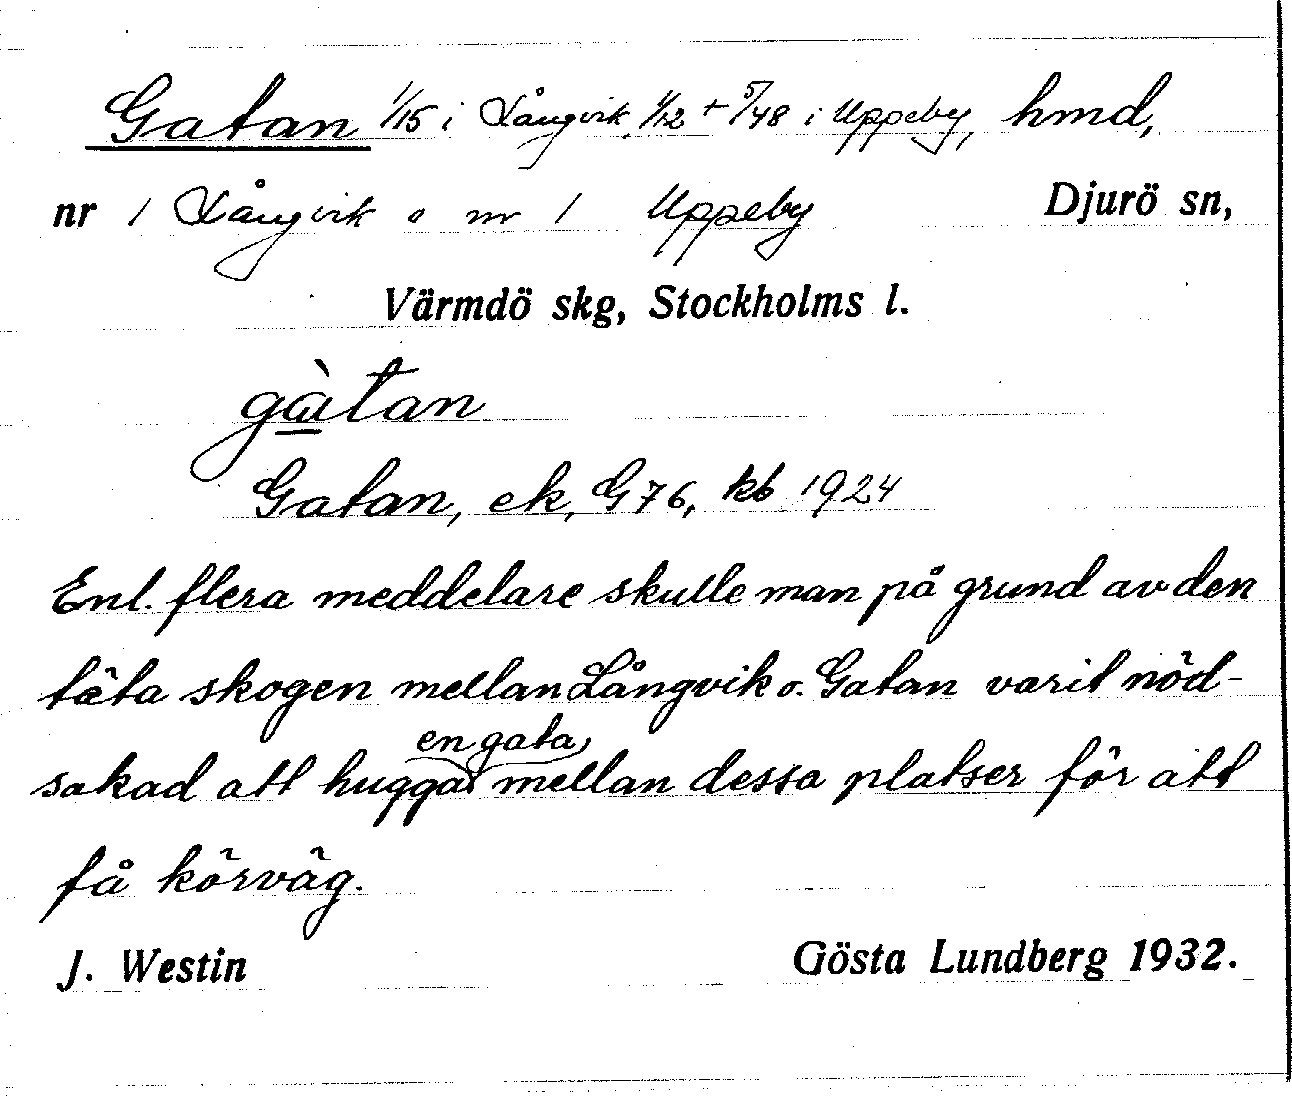 Gatan 1/15 i Långvik, 1/12 + 5/48 i Uppeby, hmd,
nr 1 Långvik o nr 1 Uppeby Djurö sn,
Värmdö skg, Stockholms l.
gàtan
Gatan, ek, G 76, kb 1924
Enl. flera meddelare skulle man på grund av den
täta skogen mellan Långvik o. Gatan varit nöd-
sakad att hugga en gata mellan dessa platser för att
få körväg.
J. Westin Gösta Lundberg 1932.